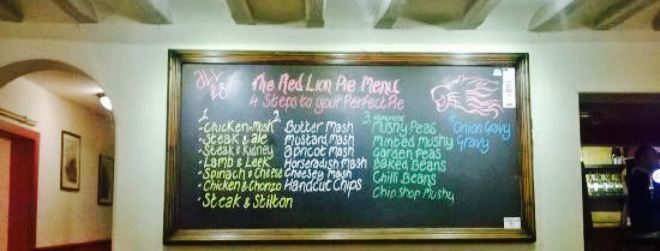 The Red Lion Pie Menu
4 Steps to your Perfect Pie
1
- Chicken & Mush
- Steak & ale
- Steak & Kidney
- Lamb & Leek
- Spinach & Cheese
- Chicken & Chorizo
- Steak & Stilton
2
Butter Mash
Mustard Mash
Apricot Mash
Horseradish Mash
Cheesey Mash
Handcut Chips
3
Mushy Peas
Minted Mushy
Garden Peas
Baked Beans
Chilli Beans
Chip Shop Mushy
4
Onion Gravy
Gravy